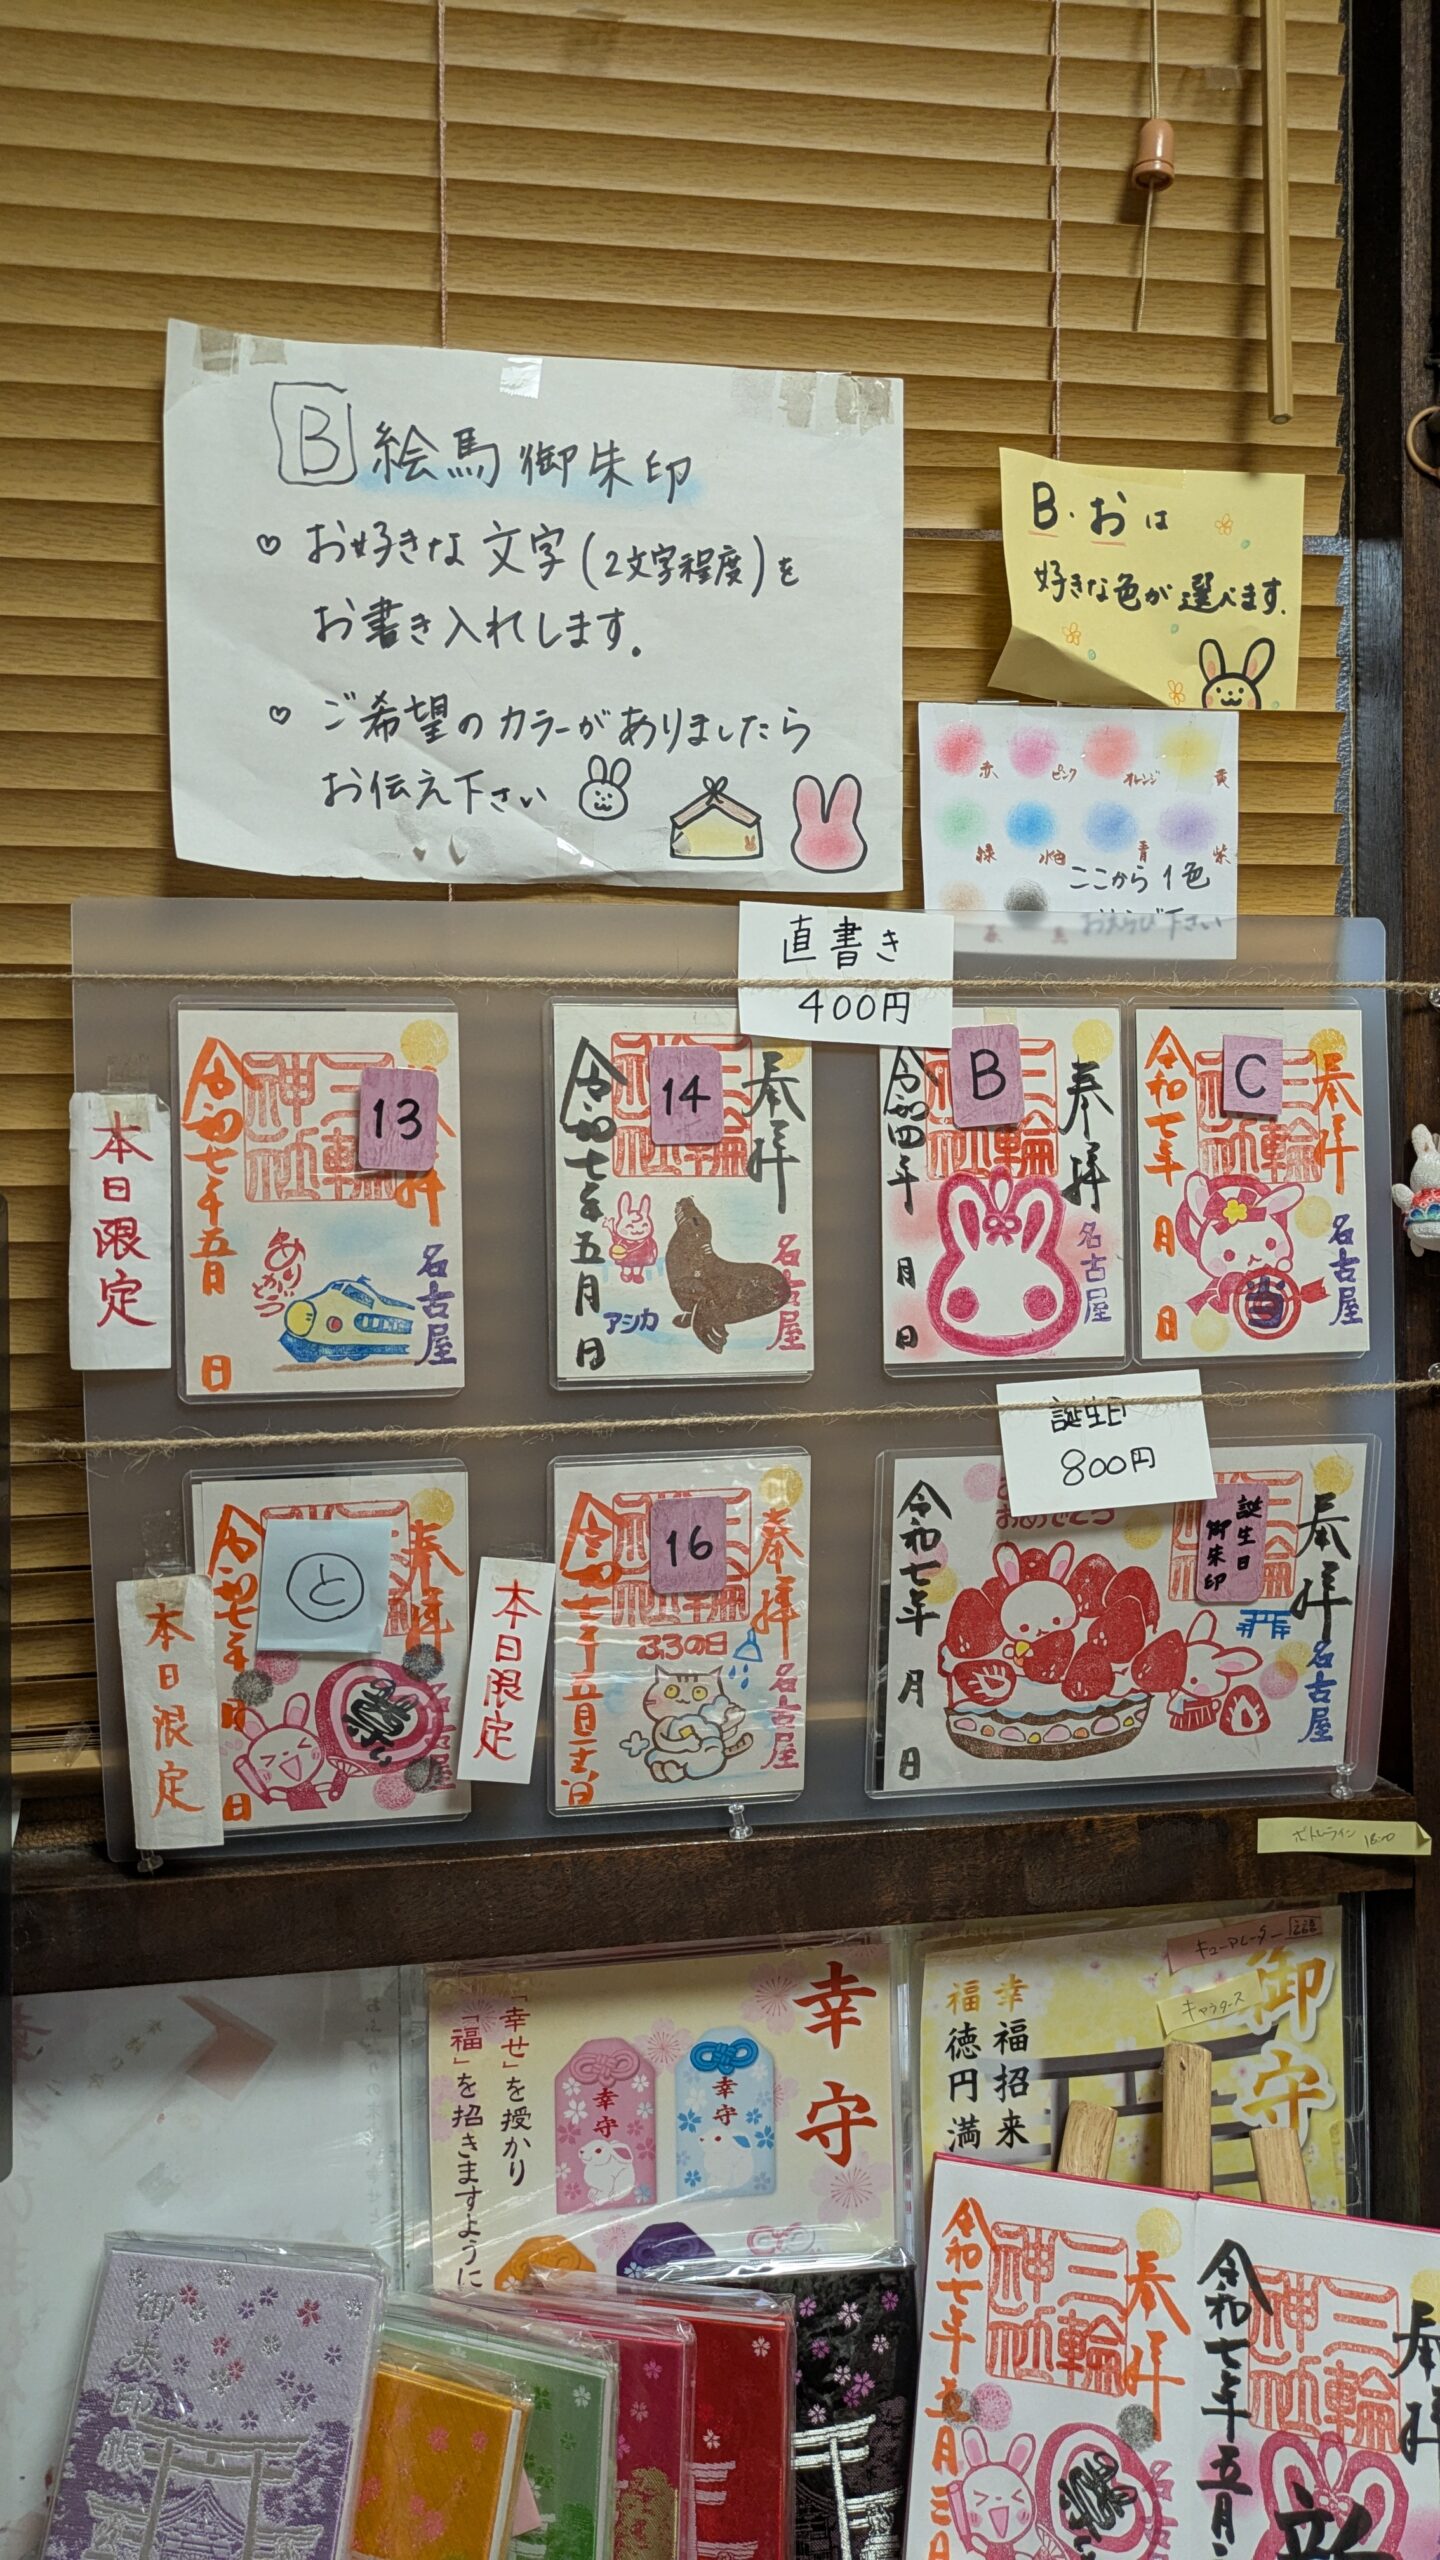 B 絵馬御朱印
♡ お好きな文字(2文字程度)を
お書き入れします.
♡ ご希望のカラーがありましたら
お伝え下さい
B・おは
好きな色が選べます.
赤 ピンク オレンジ 黄
緑 水色 青 紫
ここから1色
おえらび下さい
直書き
400円
本日限定
13
令和七年五月 日
三輪神社
ありがとう
名古屋
14
奉拝
三輪神社
令和七年五月 日
アシカ
名古屋
B
奉拝
三輪神社
令和四年 月 日
名古屋
C
奉拝
三輪神社
令和七年 月 日
名古屋
誕生日
800円
本日限定
と
奉拝
令和七年 月 日
本日限定
16
奉拝
ふろの日
名古屋
誕生日
御朱印
奉拝
おめでとう
令和七年 月 日
名古屋
幸守
「幸せ」を授かり
「福」を招きますように
幸守
幸守
御守
幸福招来
福徳円満
キューアレーター
キャラタース
御朱印帳
奉拝
三輪神社
令和七年五月三日
三輪神社
令和七年五月